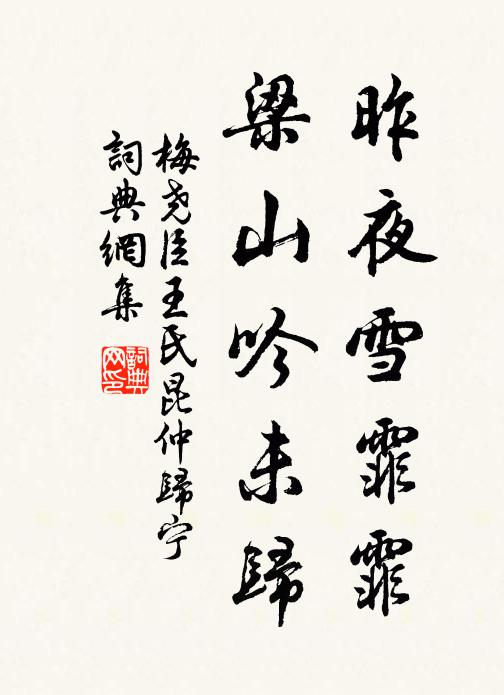 昨夜雪霏霏
梁山吟未歸
梅尧臣王氏昆仲歸宁
詞典網集
詞典网印